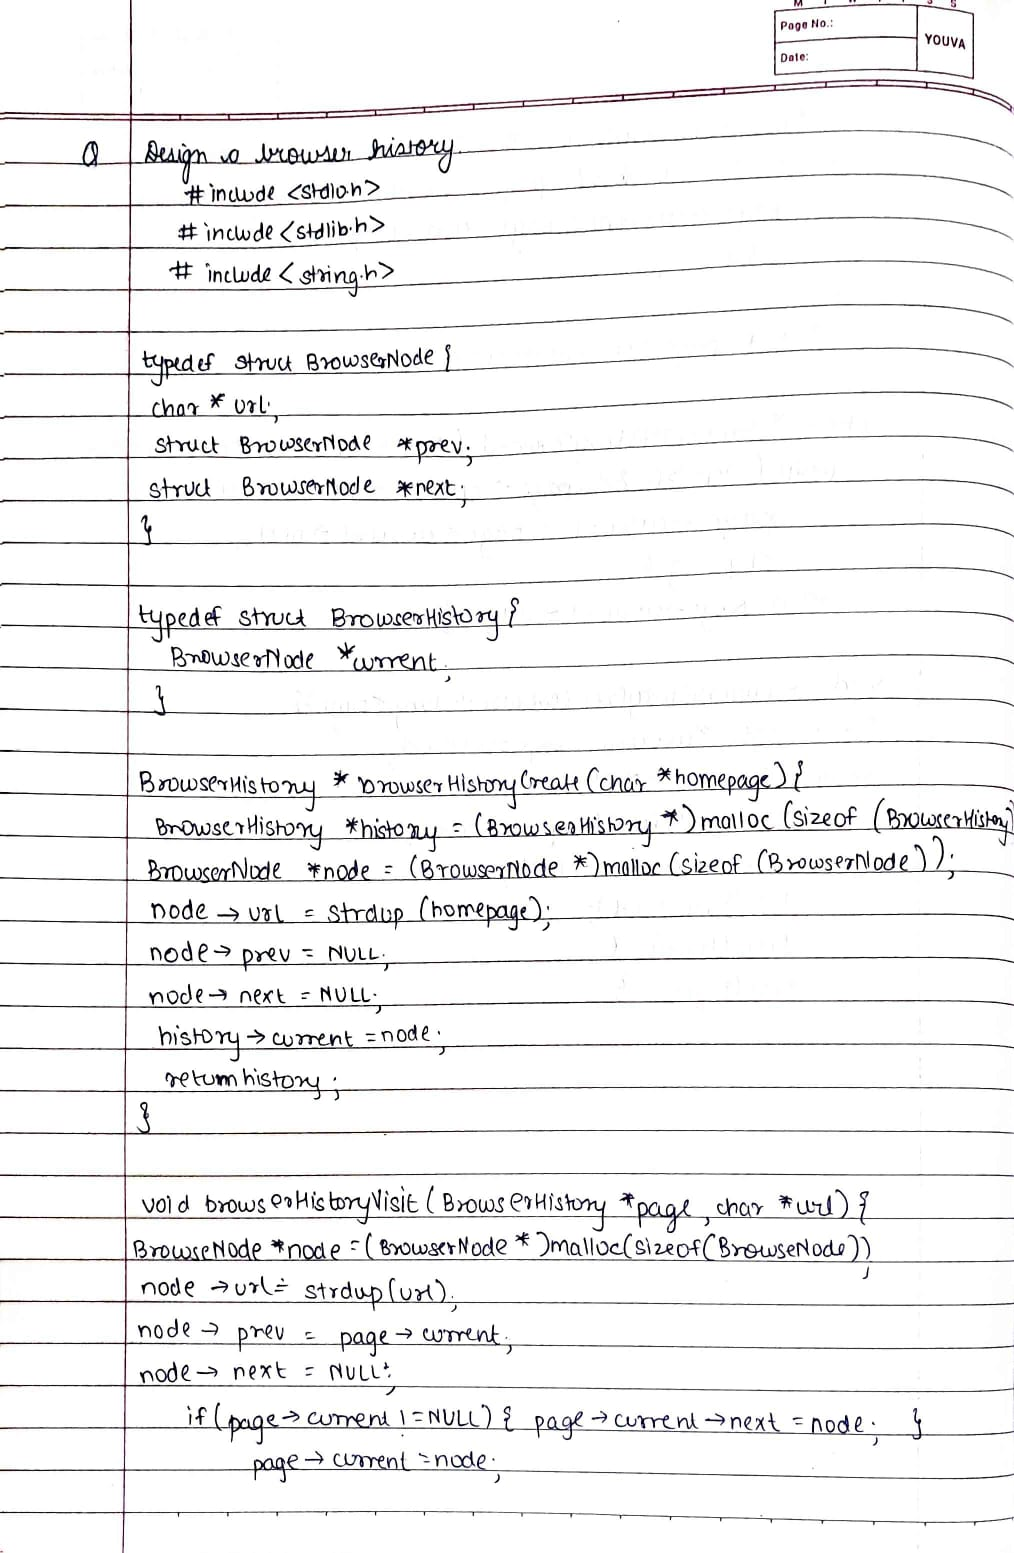 Page No.:
Date:
YOUVA
Q Design a browser history.
#include <stdio.h>
#include <stdlib.h>
# include <string.h>
typedef struct BrowserNode {
char * url;
struct BrowserNode *prev;
struct BrowserNode *next;
}
typedef struct BrowserHistory {
BrowserNode *current;
}
BrowserHistory * browserHistoryCreate (char *homepage) {
BrowserHistory *history = (BrowserHistory *) malloc (sizeof (BrowserHistory)
BrowserNode *node = (BrowserNode *) malloc (sizeof (BrowserNode));
node → url = strdup (homepage);
node → prev = NULL;
node → next = NULL;
history → current = node;
return history;
}
void browserHistoryVisit (BrowserHistory *page, char *url) {
BrowseNode *node = (BrowserNode *) malloc(sizeof(BrowseNode));
node → url = strdup(url);
node → prev = page → current;
node → next = NULL;
if (page → current != NULL) { page → current → next = node; }
page → current = node;